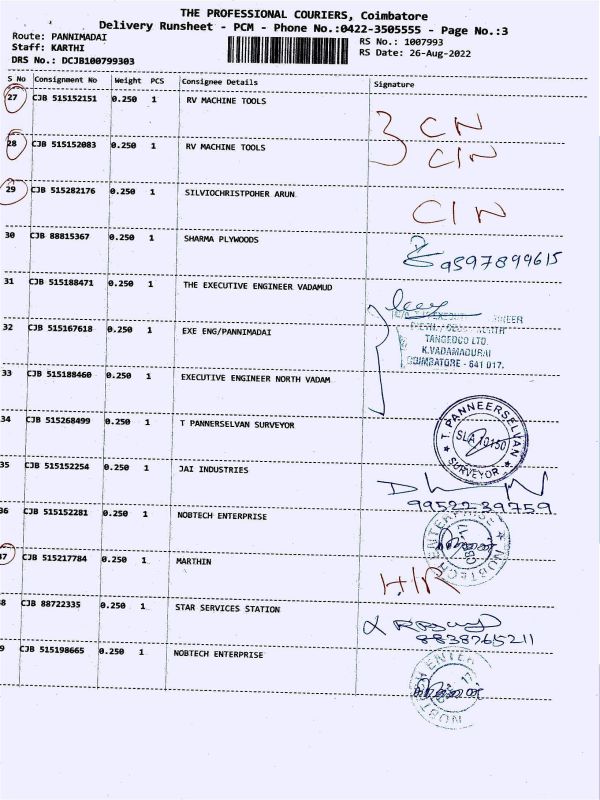 THE PROFESSIONAL COURIERS, Coimbatore
Delivery Runsheet - PCM - Phone No.:0422-3505555 - Page No.:3
Route: PANNIMADAI
RS No.: 1007993
Staff: KARTHI
RS Date: 26-Aug-2022
DRS No.: DCJB100799303
S No Consignment No Weight PCS Consignee Details Signature
27 CJB 515152151 0.250 1 RV MACHINE TOOLS
CN
28 CJB 515152083 0.250 1 RV MACHINE TOOLS
CIN
29 CJB 515282176 0.250 1 SILVIOCHRISTPOHER ARUN
CIN
30 CJB 88815367 0.250 1 SHARMA PLYWOODS
9597899615
31 CJB 515188471 0.250 1 THE EXECUTIVE ENGINEER VADAMUD
TANGEDCO LTD.
K.VADAMADURAI
COIMBATORE - 641 017.
32 CJB 515167618 0.250 1 EXE ENG/PANNIMADAI
33 CJB 515188460 0.250 1 EXECUTIVE ENGINEER NORTH VADAM
34 CJB 515268499 0.250 1 T PANNERSELVAN SURVEYOR
T. PANNEERSELVAN
SLA 10150
SURVEYOR
35 CJB 515152254 0.250 1 JAI INDUSTRIES
9952239759
36 CJB 515152281 0.250 1 NOBTECH ENTERPRISE
NOBTECH ENTERPRISE
37 CJB 515217784 0.250 1 MARTHIN
H/R
8 CJB 88722335 0.250 1 STAR SERVICES STATION
8838765211
9 CJB 515198665 0.250 1 NOBTECH ENTERPRISE